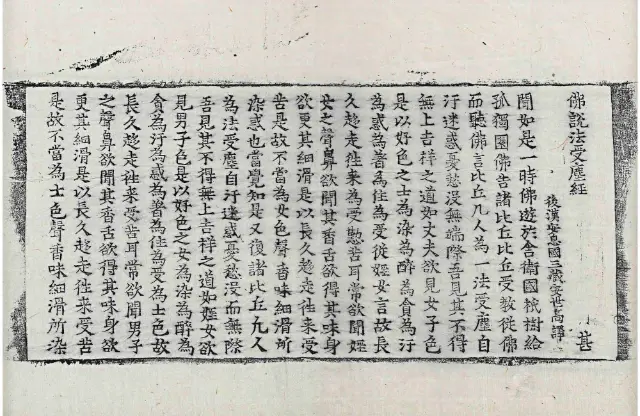 佛說法受塵經
後漢安息國三藏安世高譯 甚
聞如是一時佛遊於舍衛國祇樹給
孤獨園佛告諸比丘比丘受教從佛
而聽佛言比丘凡人為一法受塵自
汙迷惑憂愁沒無端際吾見其不得
無上吉祥之道如丈夫欲見女子色
是以好色之士為染為醉為貪為汙
為惑為著為住為受從婬女言故長
久趍走往來為受愁苦耳常欲聞婬
女之聲鼻欲聞其香舌欲得其味身
欲更其細滑是以長久趍走往來受
苦是故不當為女色聲香味細滑所
染惑也當覺知是又復諸比丘凡人
為法受塵自汙迷惑憂愁沒而無際
吾見其不得無上吉祥之道如婬女欲
見男子色是以好色之女為染為醉為
貪為汙為惑為著為住為憂為士色故
長久趍走往來受苦耳常欲聞男子
之聲鼻欲聞其香舌欲得其味身欲
更其細滑是以長久趍走往來受苦
是故不當為士色聲香味細滑所染